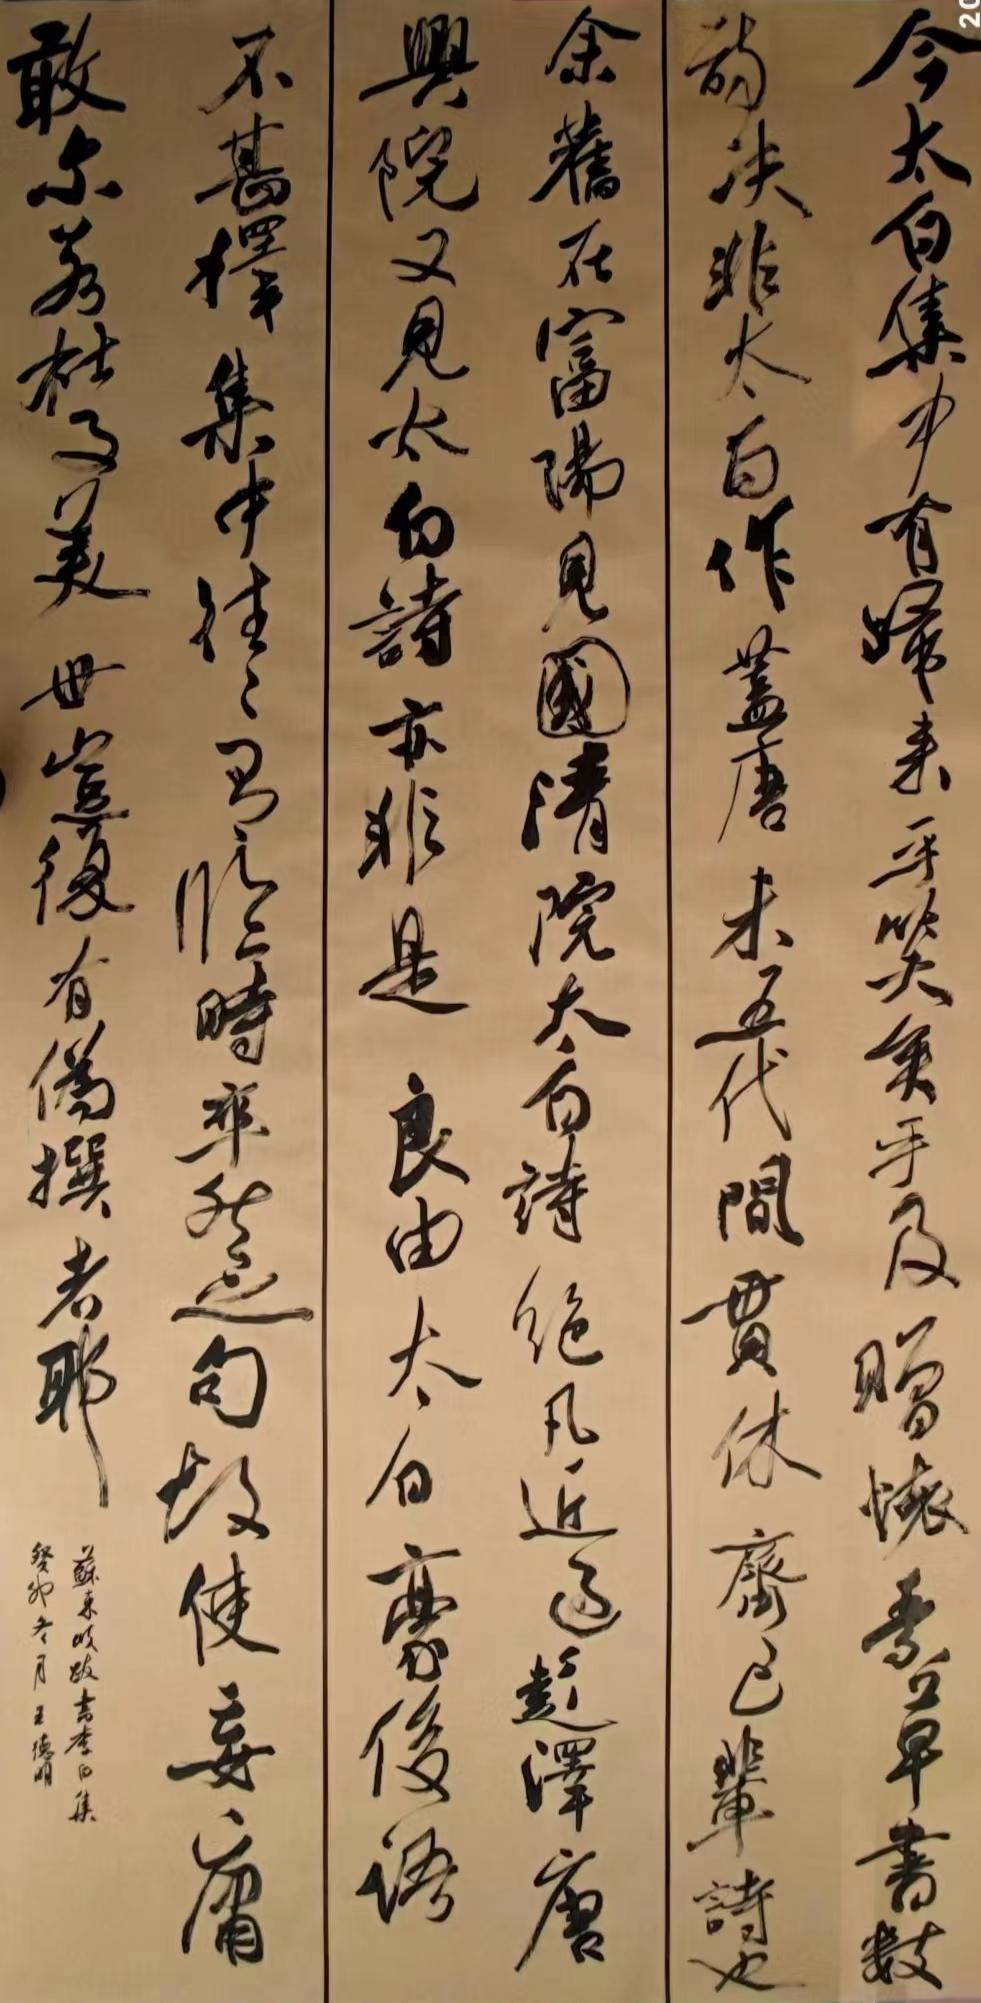 今太白集中有歸来乎笑矣乎及贈懐素草書數
詩决非太白作蓋唐末五代間貫休齊已輩詩也
余舊在富陽見國清院太白詩絶凡近過彭澤唐
興院又見太白詩亦非是良由太白豪俊語
不甚擇集中往々有臨時率然之句故使妄庸
敢尔若杜子美世豈復有偽撰者耶
蘇東坡跋書李白集
癸卯冬月王德明
20